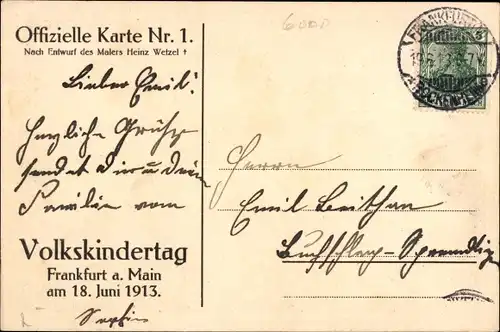 Offizielle Karte Nr. 1.
Nach Entwurf des Malers Heinz Wetzel †
Lieber Emil!
Herzliche Grüße
sendet Dir u Deiner
Familie vom
Volkskindertag
Frankfurt a. Main
am 18. Juni 1913.
Sophie
FRANKFURT
BOCKENHEIM
Herrn
Emil